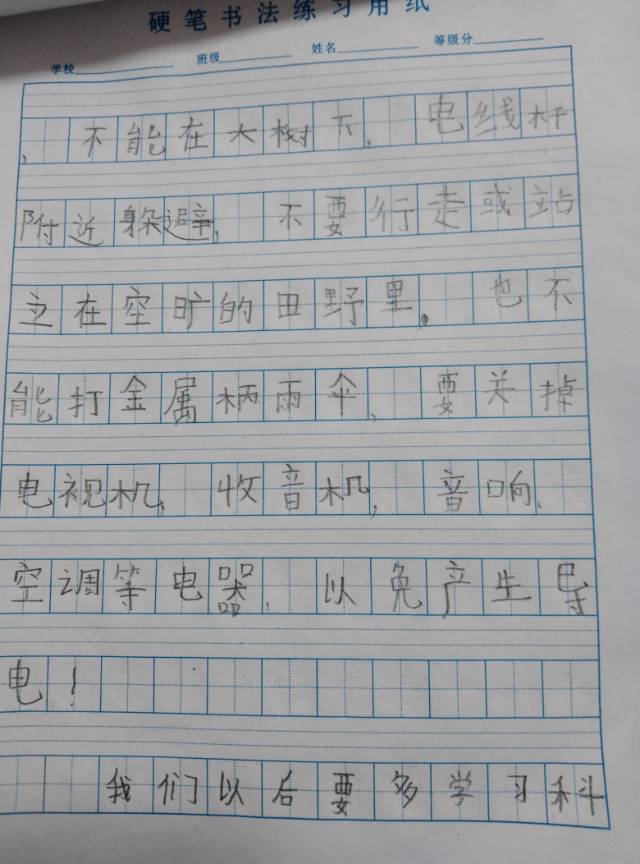 硬笔书法练习用纸
学校 班级 姓名 等级分
，不能在大树下，电线杆
附近躲避，不要行走或站
立在空旷的田野里。也不
能打金属柄雨伞，要关掉
电视机，收音机，音响、
空调等电器，以免产生导
电！
我们以后要多学习科